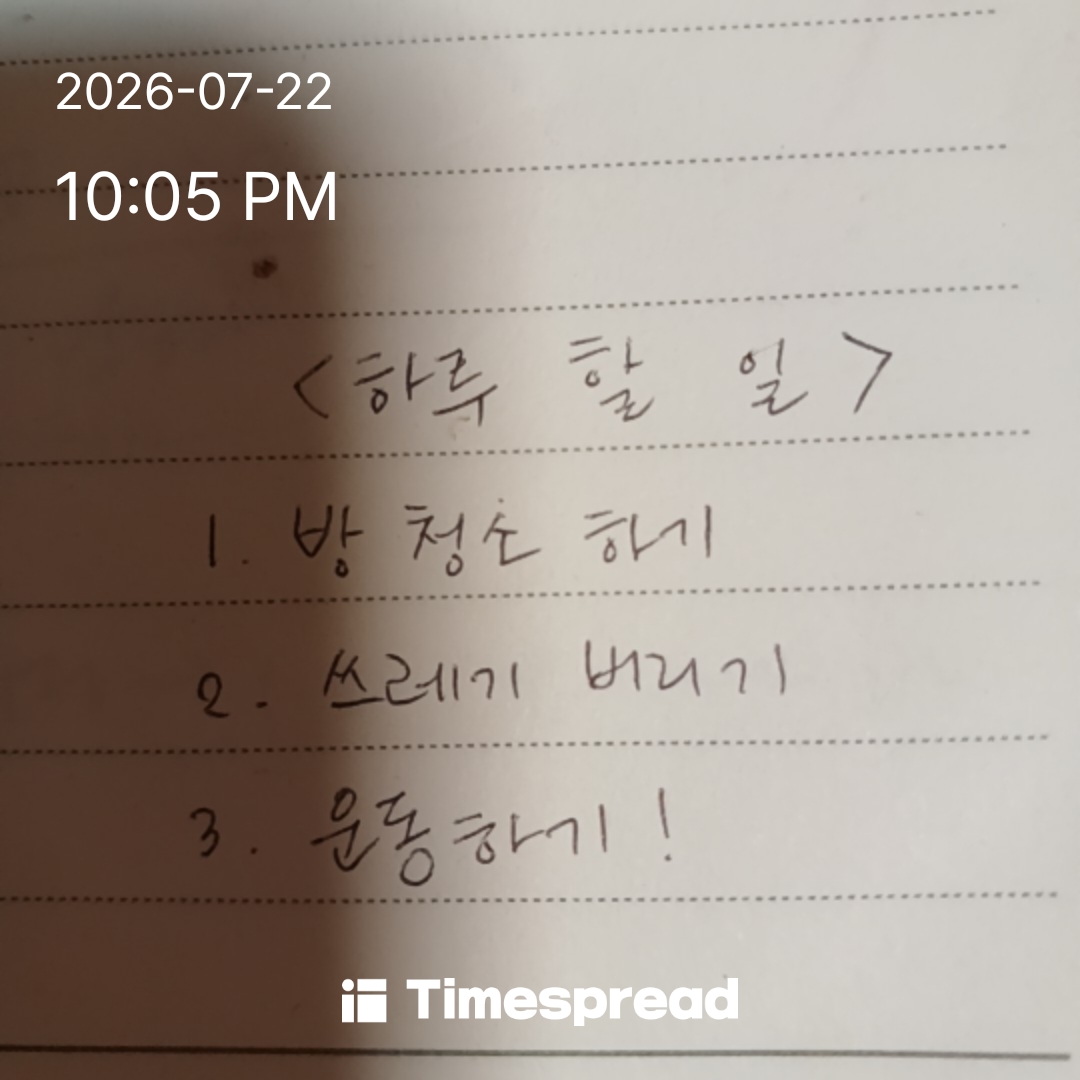 2026-07-22
10:05 PM
<하루 할 일>
1. 방 청소 하기
2. 쓰레기 버리기
3. 운동하기!
Timespread